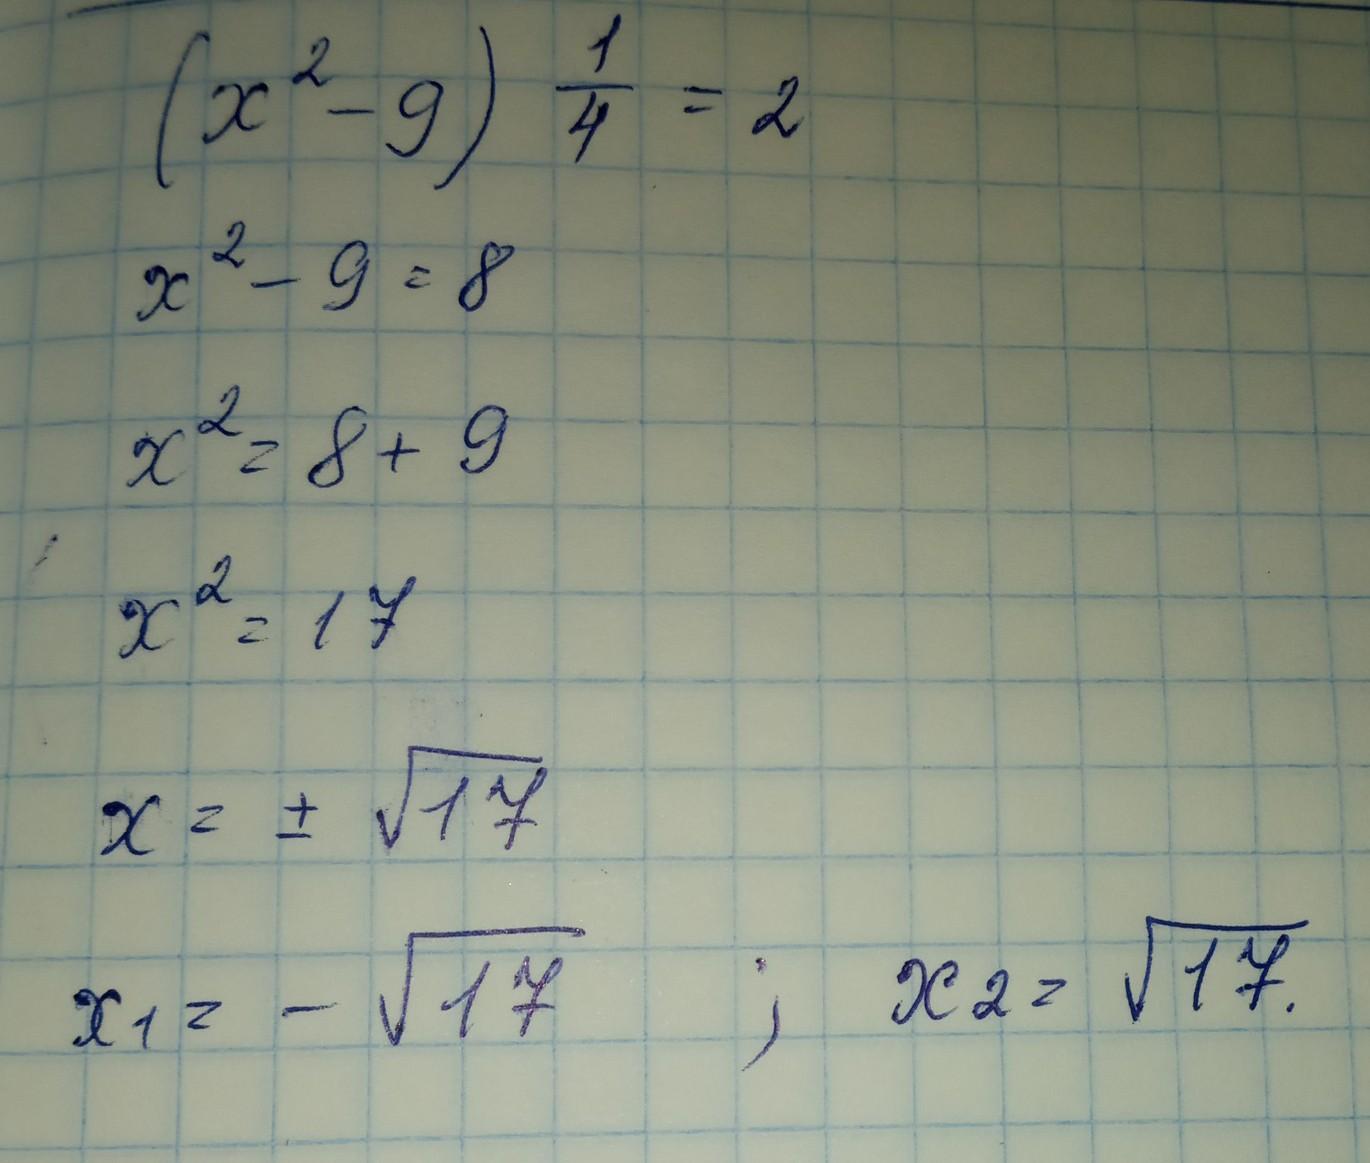 (x² - 9) 1/4 = 2
x² - 9 = 8
x² = 8 + 9
x² = 17
x = ± √17
x₁ = - √17 ; x₂ = √17.